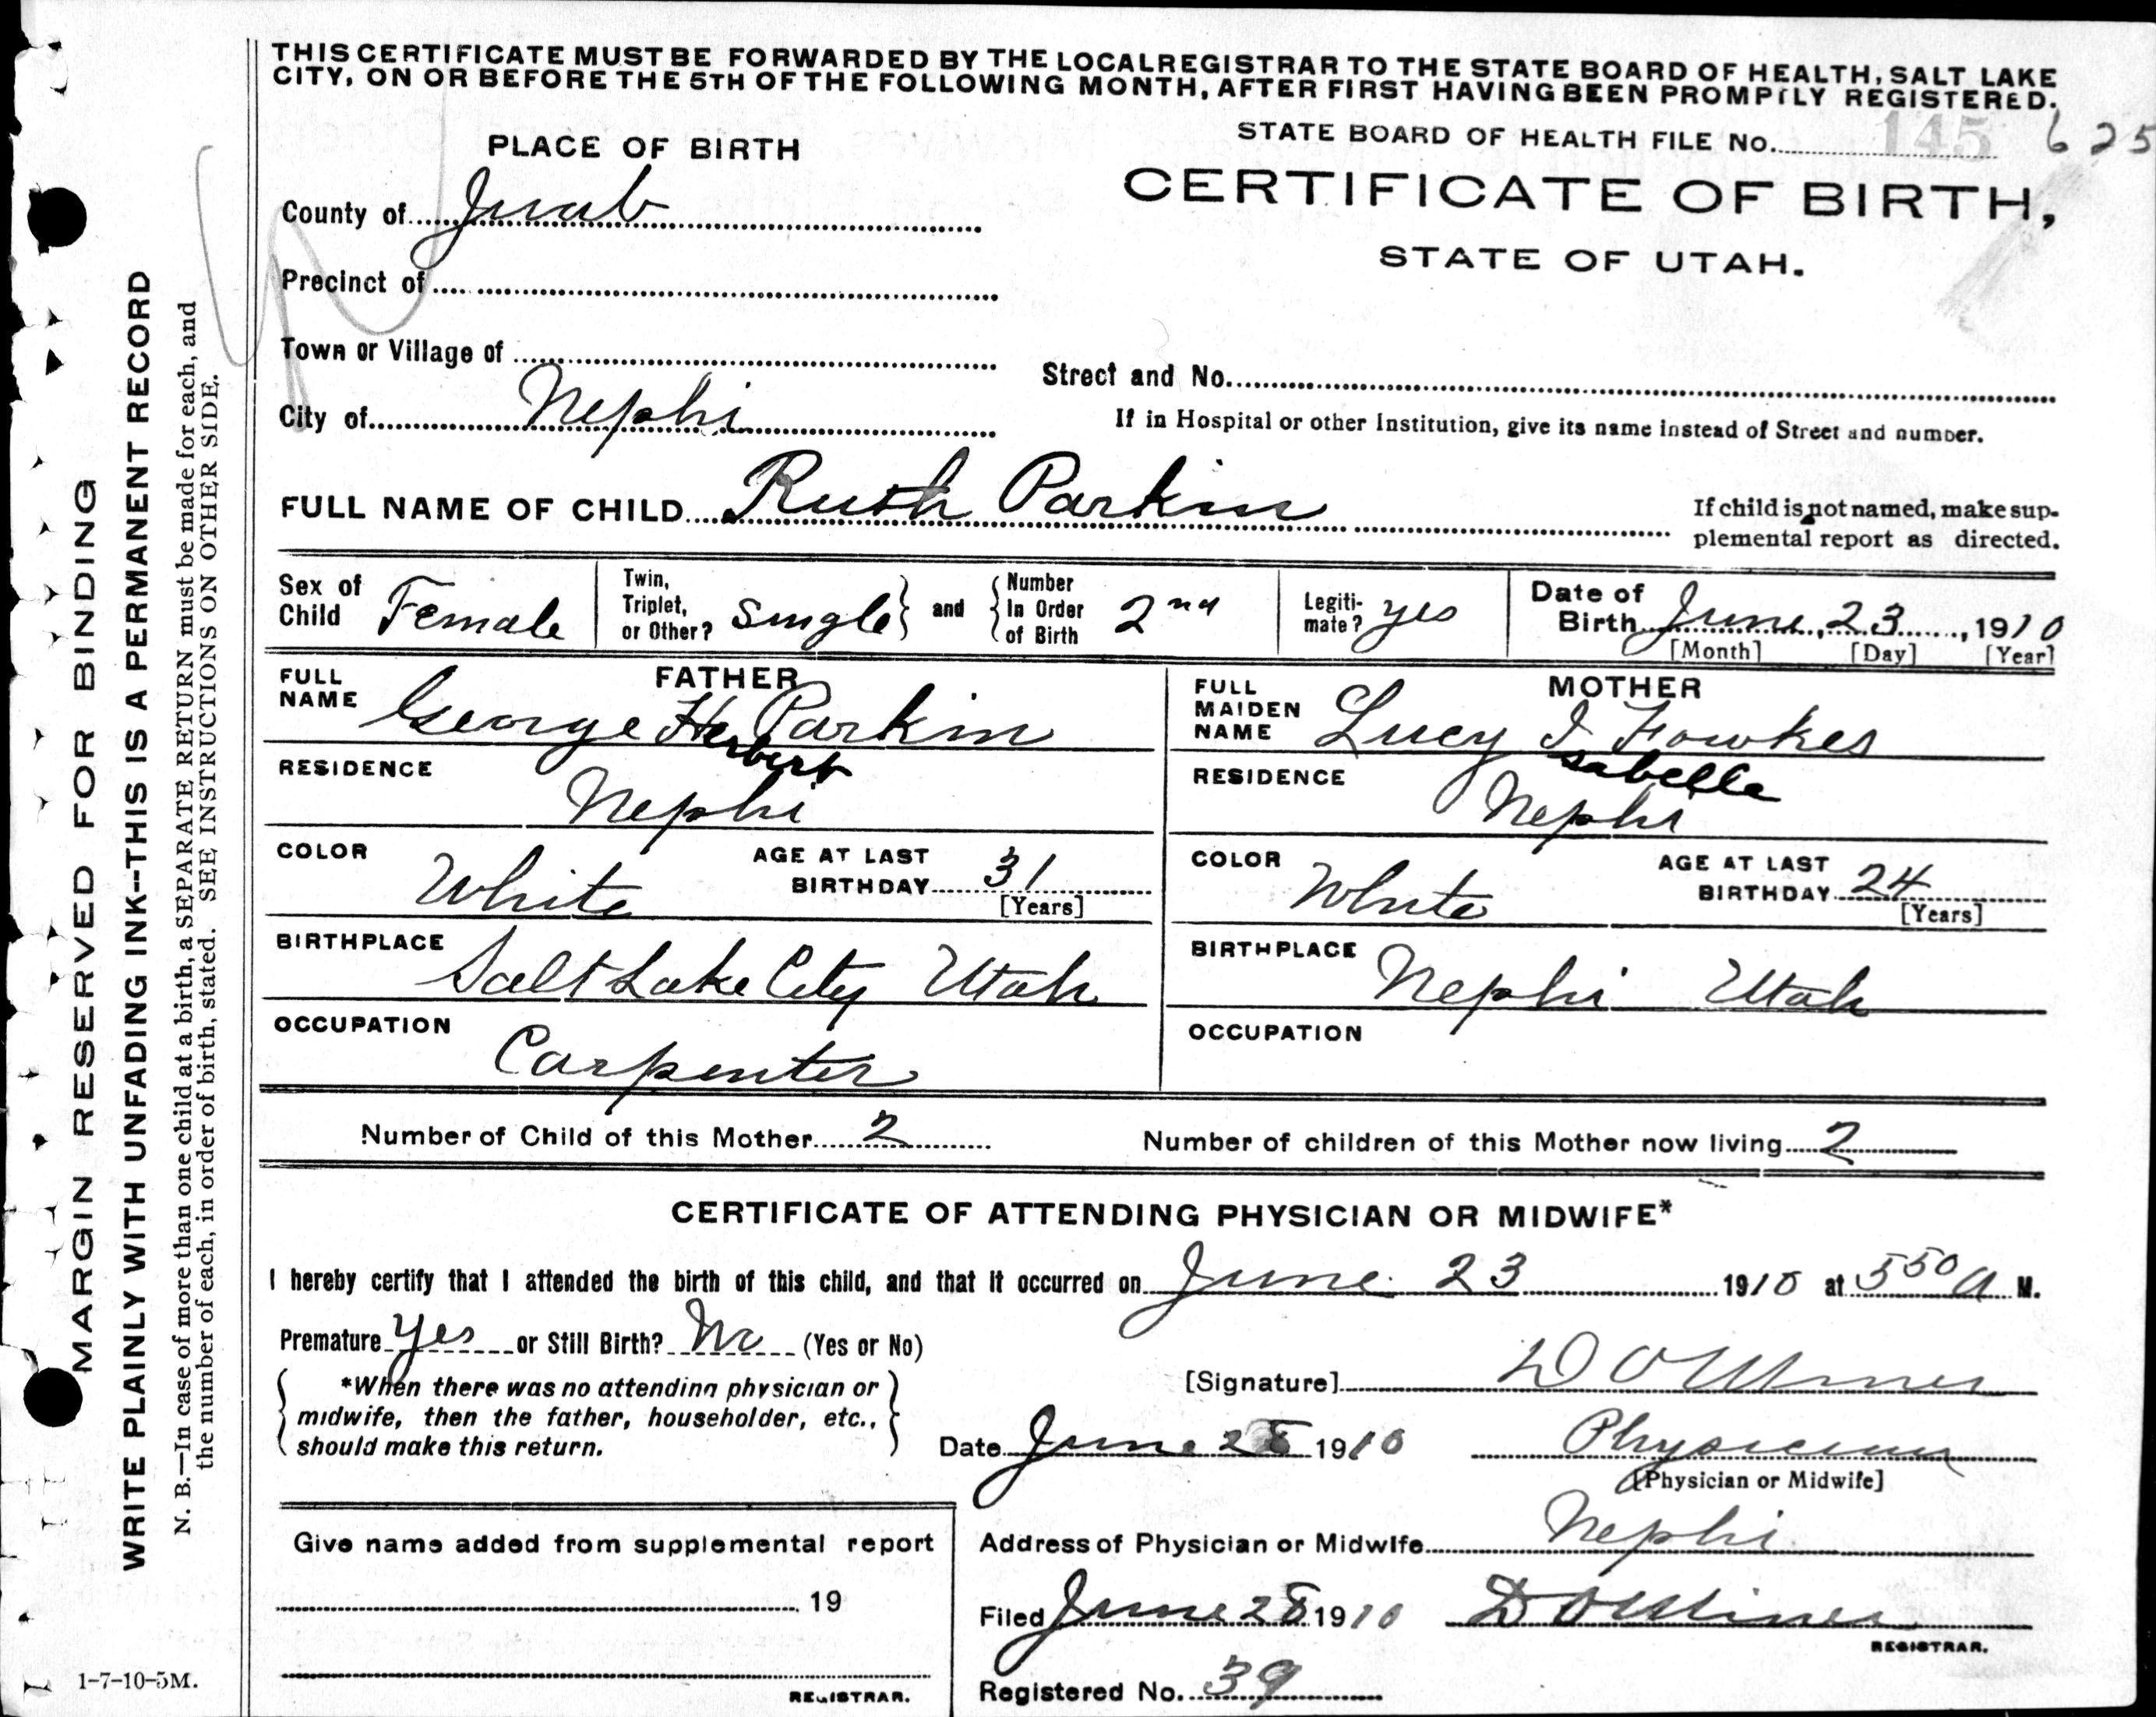 THIS CERTIFICATE MUST BE FORWARDED BY THE LOCAL REGISTRAR TO THE STATE BOARD OF HEALTH, SALT LAKE
CITY, ON OR BEFORE THE 5TH OF THE FOLLOWING MONTH, AFTER FIRST HAVING BEEN PROMPTLY REGISTERED.
STATE BOARD OF HEALTH FILE No. 145 625
PLACE OF BIRTH
CERTIFICATE OF BIRTH,
STATE OF UTAH.
County of Juab
Precinct of
Town or Village of
Street and No.
City of Nephi
If in Hospital or other Institution, give its name instead of Street and number.
FULL NAME OF CHILD Ruth Parkin
If child is not named, make sup-
plemental report as directed.
Sex of Child Female
Twin, Triplet, or Other? Single and Number In Order of Birth 2nd
Legiti-mate? yes
Date of Birth June, 23, 1910
[Month] [Day] [Year]
FATHER
FULL NAME George H Parkin
Herbert
RESIDENCE Nephi
COLOR White AGE AT LAST BIRTHDAY 31
[Years]
BIRTHPLACE Salt Lake City Utah
OCCUPATION Carpenter
MOTHER
FULL MAIDEN NAME Lucy I Fowkes
sabelle
RESIDENCE Nephi
COLOR White AGE AT LAST BIRTHDAY 24
[Years]
BIRTHPLACE Nephi Utah
OCCUPATION
Number of Child of this Mother 2 Number of children of this Mother now living 2
CERTIFICATE OF ATTENDING PHYSICIAN OR MIDWIFE*
I hereby certify that I attended the birth of this child, and that it occurred on June 23 1910 at 5 50 a M.
Premature Yes or Still Birth? No (Yes or No)
*When there was no attending physician or
midwife, then the father, householder, etc.,
should make this return.
[Signature] D O Miner
Date June 28 1910 Physician
[Physician or Midwife]
Address of Physician or Midwife Nephi
Filed June 28 1910 D O Miner
REGISTRAR.
Registered No. 39
Give name added from supplemental report
19
REGISTRAR.
1-7-10-5M.
MARGIN RESERVED FOR BINDING
WRITE PLAINLY WITH UNFADING INK--THIS IS A PERMANENT RECORD
N. B.—In case of more than one child at a birth, a SEPARATE RETURN must be made for each, and
the number of each, in order of birth, stated. SEE INSTRUCTIONS ON OTHER SIDE.